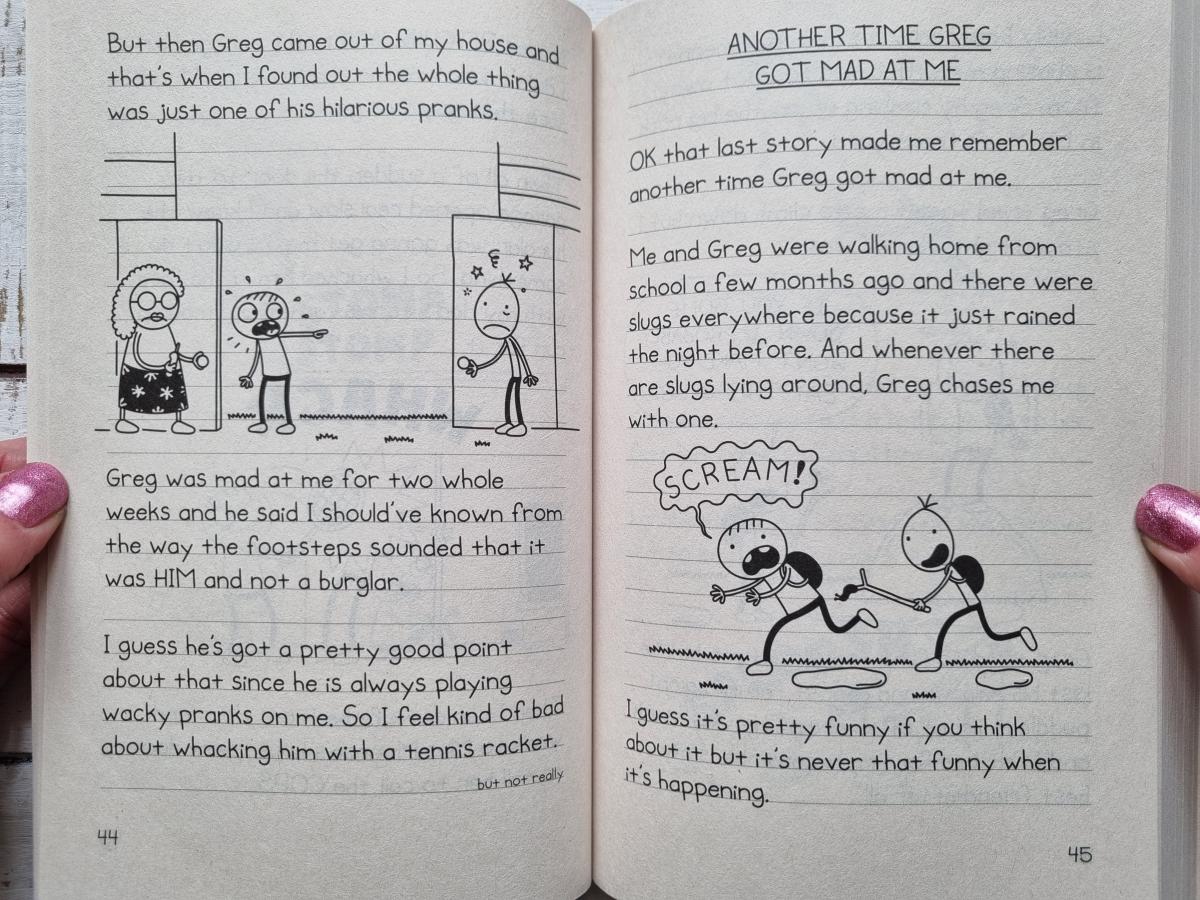 But then Greg came out of my house and
that's when I found out the whole thing
was just one of his hilarious pranks.
Greg was mad at me for two whole
weeks and he said I should've known from
the way the footsteps sounded that it
was HIM and not a burglar.
I guess he's got a pretty good point
about that since he is always playing
wacky pranks on me. So I feel kind of bad
about whacking him with a tennis racket.
but not really
44
ANOTHER TIME GREG
GOT MAD AT ME
OK that last story made me remember
another time Greg got mad at me.
Me and Greg were walking home from
school a few months ago and there were
slugs everywhere because it just rained
the night before. And whenever there
are slugs lying around, Greg chases me
with one.
SCREAM!
I guess it's pretty funny if you think
about it but it's never that funny when
it's happening.
45